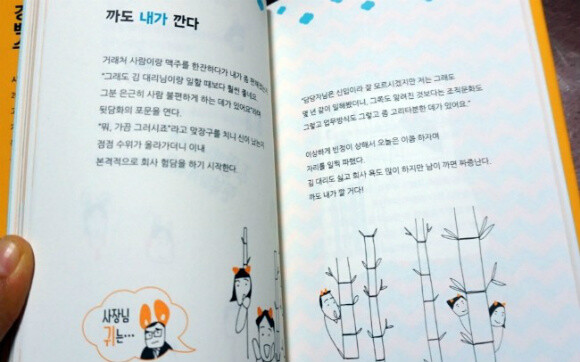 까도 내가 깐다
거래처 사람이랑 맥주를 한잔하다가 내가 좀
"그래도 김 대리님이랑 일할 때보다 훨씬 좋네요.
그분 은근히 사람 불편하게 하는 데가 있어요"라며
뒷담화의 포문을 연다.
"뭐, 가끔 그러시죠"라고 맞장구를 치니 신이 났는지
점점 수위가 올라가더니 이내
본격적으로 회사 험담을 하기 시작한다.
사장님
귀는…
"담당자님은 신입이라 잘 모르시겠지만 저는 그래도
몇 년 같이 일해봤더니, 그쪽도 알려진 것보다는 조직문화도
그렇고 업무방식도 그렇고 좀 고리타분한 데가 있어요."
이상하게 빈정이 상해서 오늘은 이쯤 하자며
자리를 일찍 파했다.
김 대리도 싫고 회사 욕도 많이 하지만 남이 까면 짜증난다.
까도 내가 깔 거다!